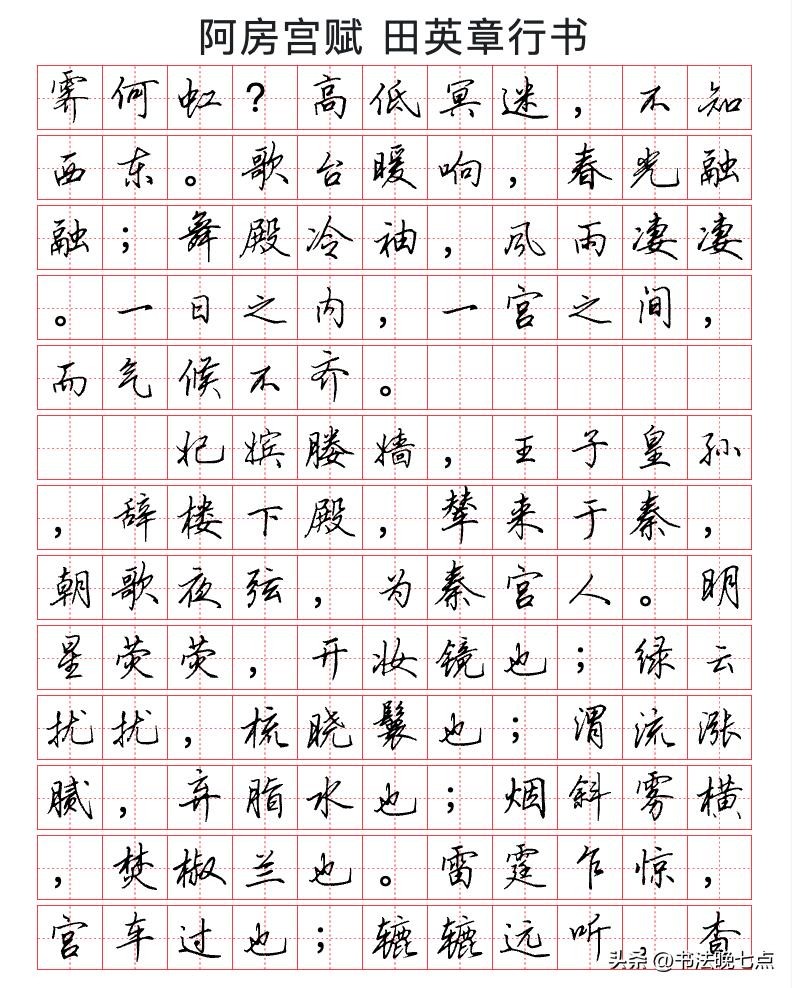 阿房宫赋 田英章行书
霁何虹？高低冥迷，不知
西东。歌台暖响，春光融
融；舞殿冷袖，风雨凄凄
。一日之内，一宫之间，
而气候不齐。
妃嫔媵嫱，王子皇孙
，辞楼下殿，辇来于秦，
朝歌夜弦，为秦宫人。明
星荧荧，开妆镜也；绿云
扰扰，梳晓鬟也；渭流涨
腻，弃脂水也；烟斜雾横
，焚椒兰也。雷霆乍惊，
宫车过也；辘辘远听，杳
头条 @书法晚七点